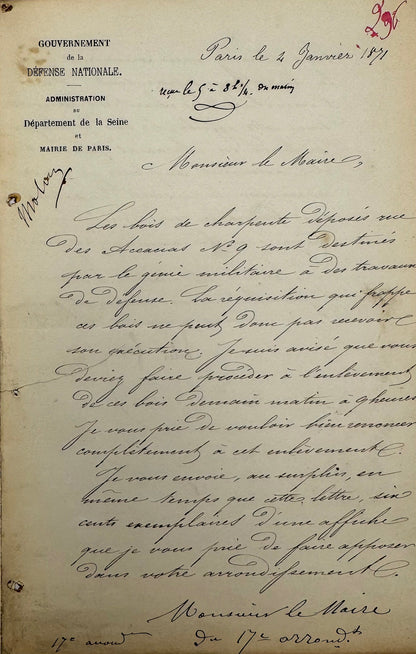 296
GOUVERNEMENT
de la
DÉFENSE NATIONALE.
ADMINISTRATION
du
Département de la Seine
et
MAIRIE DE PARIS.
Paris le 4 Janvier 1871
reçu le 5 à 8h 1/4 du matin
Monsieur le Maire,
Les bois de charpente déposés rue
des Accacias No. 9 sont destinés
par le génie militaire à des travaux
de défense. La réquisition qui frappe
ces bois ne peut donc pas recevoir
son exécution. Je suis avisé que vous
devriez faire procéder à l'enlèvement
de ces bois demain matin à 9 heures
Je vous prie de vouloir bien renoncer
complètement à cet enlèvement.
Je vous envoie, au surplus, en
même temps que cette lettre, six
cents exemplaires d'une affiche
que je vous prie de faire apposer
dans votre arrondissement.
Monsieur le Maire
du 17e arrondt
17e arrondt